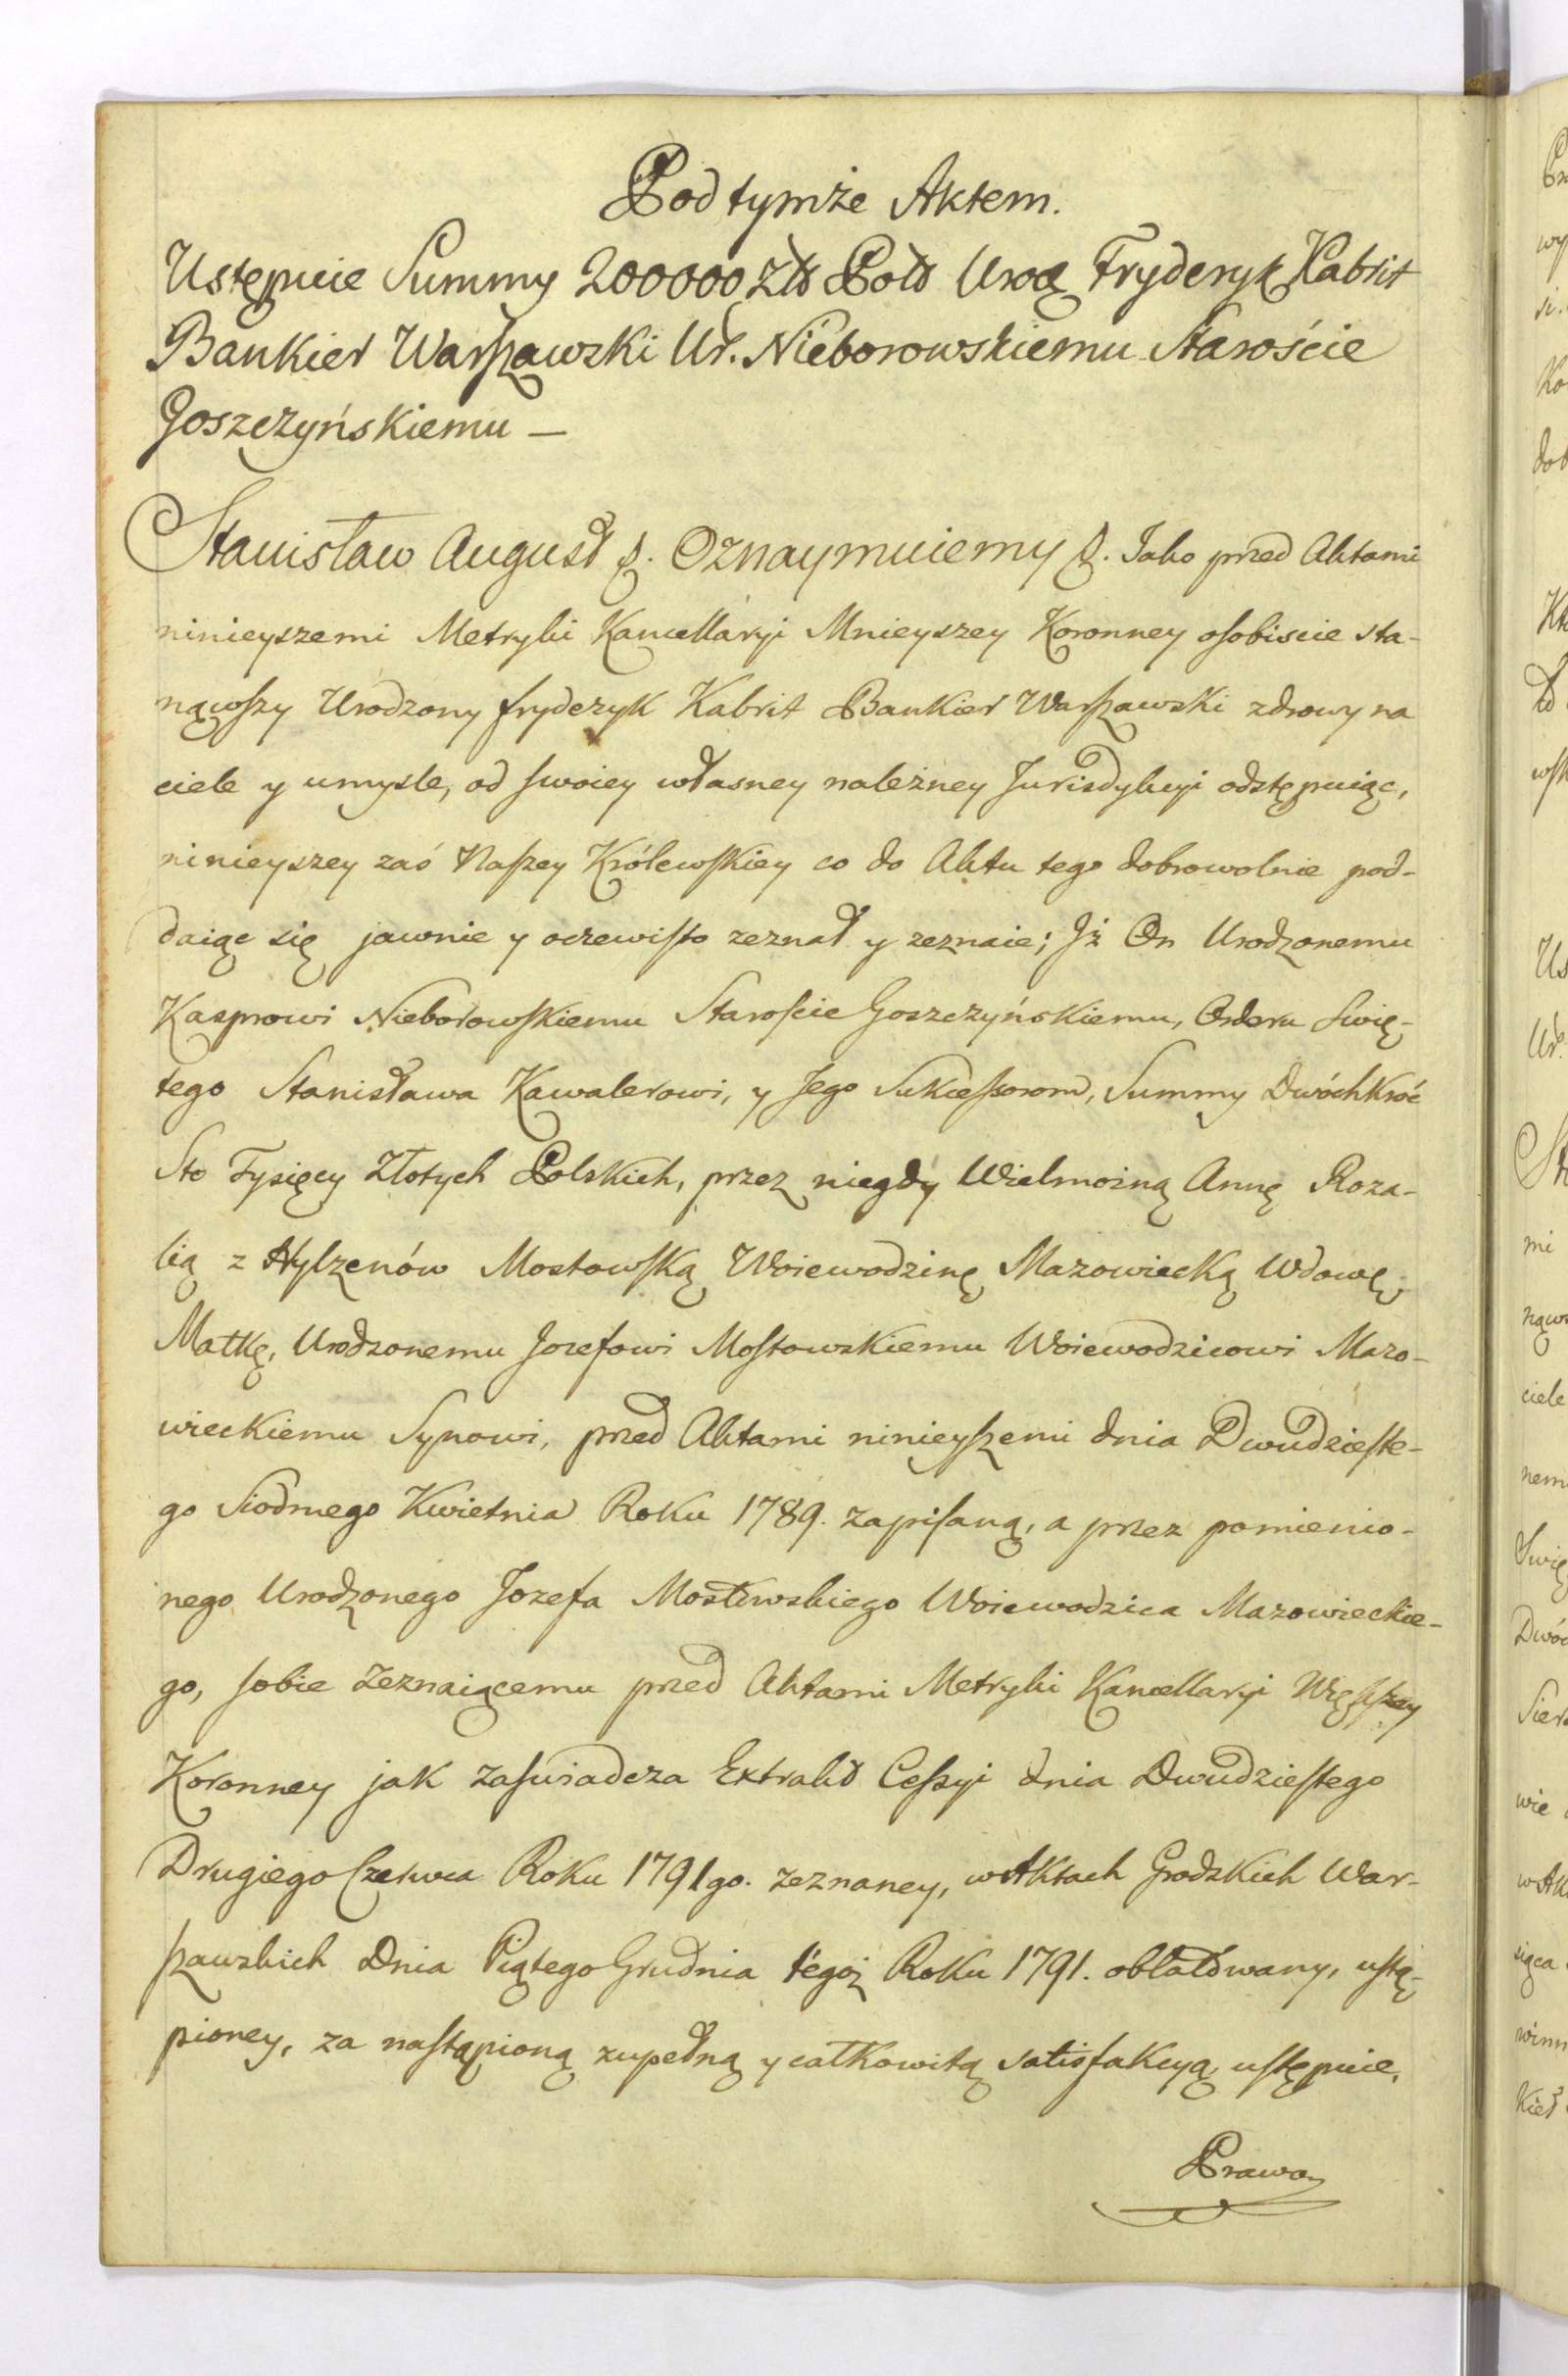 Pod tymże Aktem.
Ustępuie Summy 200000 Zło Pols Urod Fryderyk Kabrit
Bankier Warszawski Ur. Nieborowskiemu Staroście
Goszczyńskiemu —
Stanisław August &. Oznaymuiemy &. Jako przed Aktami
ninieyszemi Metryki Kancellaryi Mnieyszey Koronney osobiscie sta-
nąwszy Urodzony fryderyk Kabrit Bankier Warszawski zdrowy na
ciele y umysle, od swoiey własney należney Jurisdykcyi odstępuiąc,
ninieyszey zaś Naszey Królewskiey co do Aktu tego dobrowolnie pod-
daiąc się jawnie y oczewisto zeznał y zeznaie; Jż On Urodzonemu
Kasprowi Nieborowskiemu Staroscie Goszczyńskiemu, Orderu Swię-
tego Stanisława Kawalerowi, y Jego Sukcessorom, Summy Dwóchkroć
Sto Tysięcy Złotych Polskich, przez niegdy Wielmożną Annę Roza-
lią z Hylzenów Mostowską Woiewodzinę Mazowiecką Wdowę
Matkę, Urodzonemu Jozefowi Mostowskiemu Woiewodzicowi Mazo-
wieckiemu Synowi, przed Aktami ninieyszemi dnia Dwudzieste-
go Siodmego Kwietnia Roku 1789. zapisaną, a przez pomienio-
nego Urodzonego Jozefa Mostowskiego Woiewodzica Mazowieckie-
go, sobie zeznaiącemu przed Aktami Metryki Kancellaryi Więszey
Koronney jak zaswiadcza Extrakt Cessyi dnia Dwudziestego
Drugiego Czerwca Roku 1791go. zeznaney, w Aktach Grodzkich War-
szawskich Dnia Piątego Grudnia tegoż Roku 1791. oblatowany, ustą-
pioney, za nastąpioną zupełną y całkowitą satisfakcyą ustępuie,
Prawo